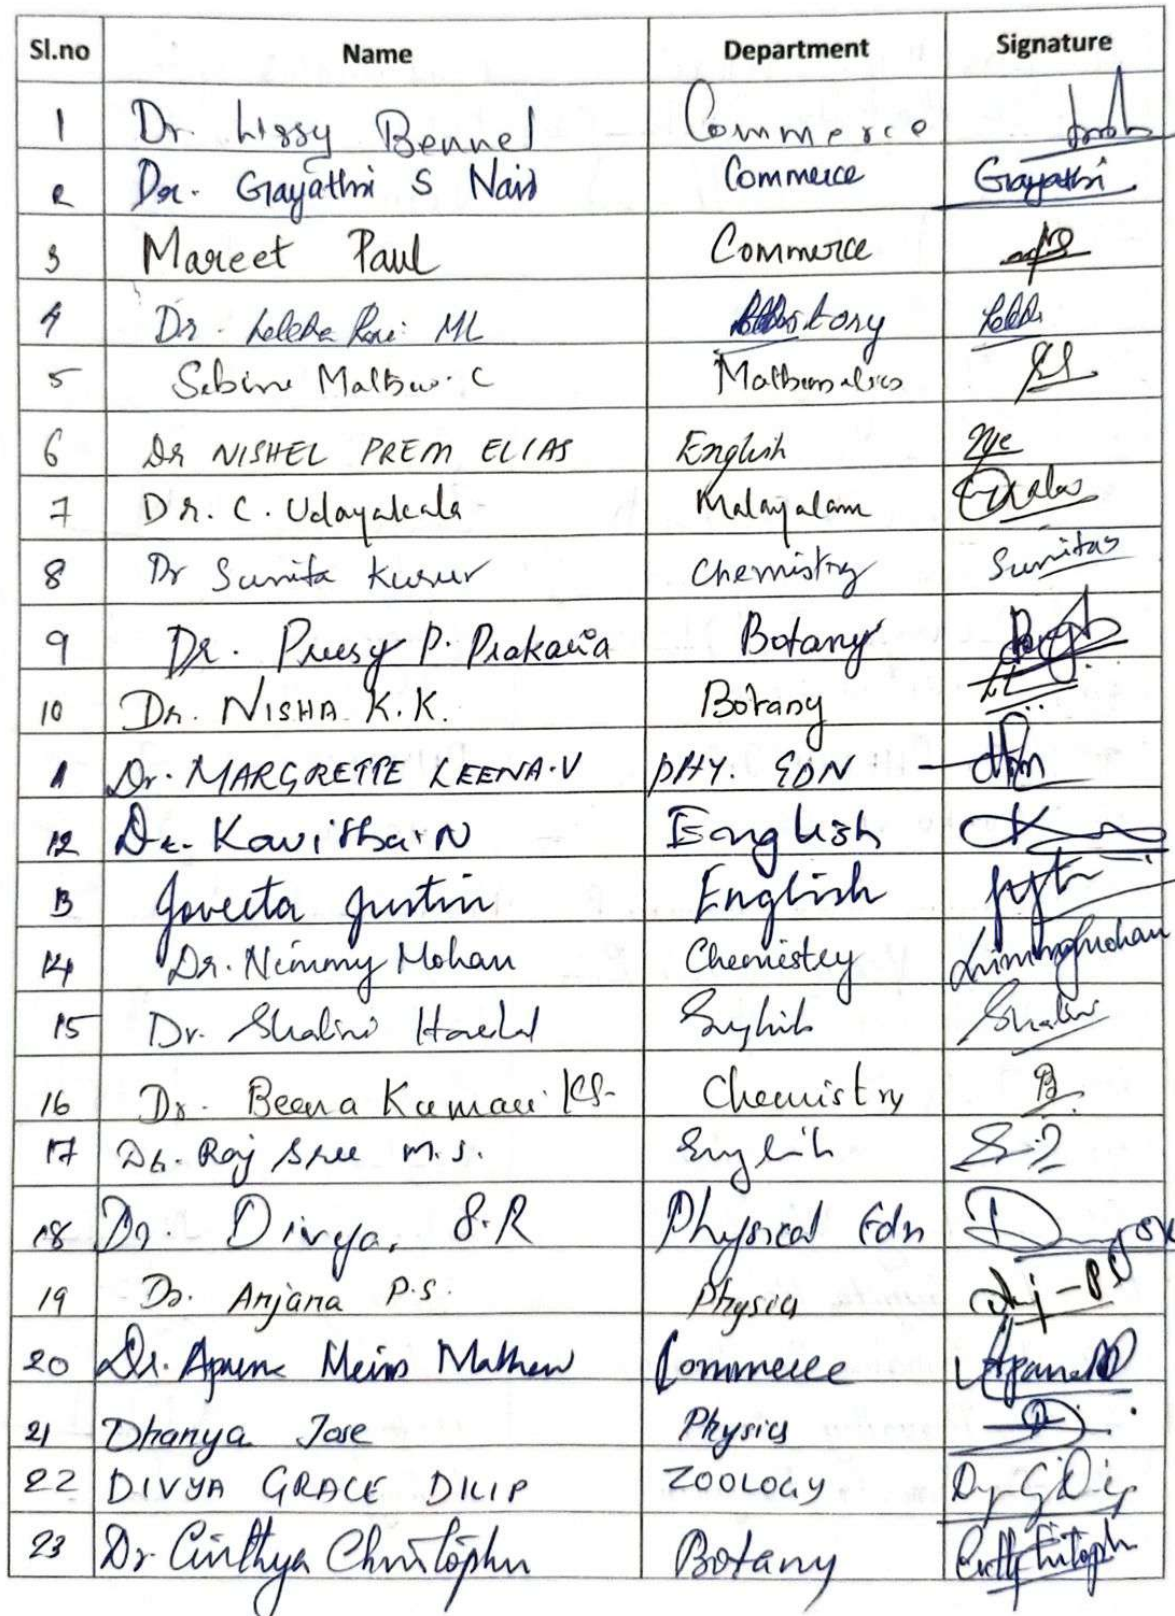 Sl.no Name Department Signature
1 Dr. Lissy Bennet Commerce
2 Dr. Gayathri S Nair Commerce Gayathri
3 Mareet Paul Commerce
4 Dr. Lekha Rani ML History
5 Sabine Mathew. C Mathematics
6 Dr NISHEL PREM ELIAS English
7 Dr. C. Udayakala Malayalam
8 Dr Sunita Kurur Chemistry Sunitas
9 Dr. Preesy P. Prakasia Botany
10 Dr. NISHA K.K. Botany
11 Dr. MARGRETTE LEENA.V PHY. EDN
12 Dr. Kavitha.N English
13 Joveeta Justin English
14 Dr. Nimmy Mohan Chemistry Nimmymohan
15 Dr. Shalini Harold English Shalini
16 Dr. Beena Kumari KS. Chemistry B
17 Dr. Raj Sree M.S. English
18 Dr. Divya, S.R Physical Edn
19 Dr. Anjana P.S. Physics
20 Dr. Aparna Merin Mathew Commerce
21 Dhanya Jose Physics
22 DIVYA GRACE DILIP ZOOLOGY
23 Dr. Cinthya Christopher Botany